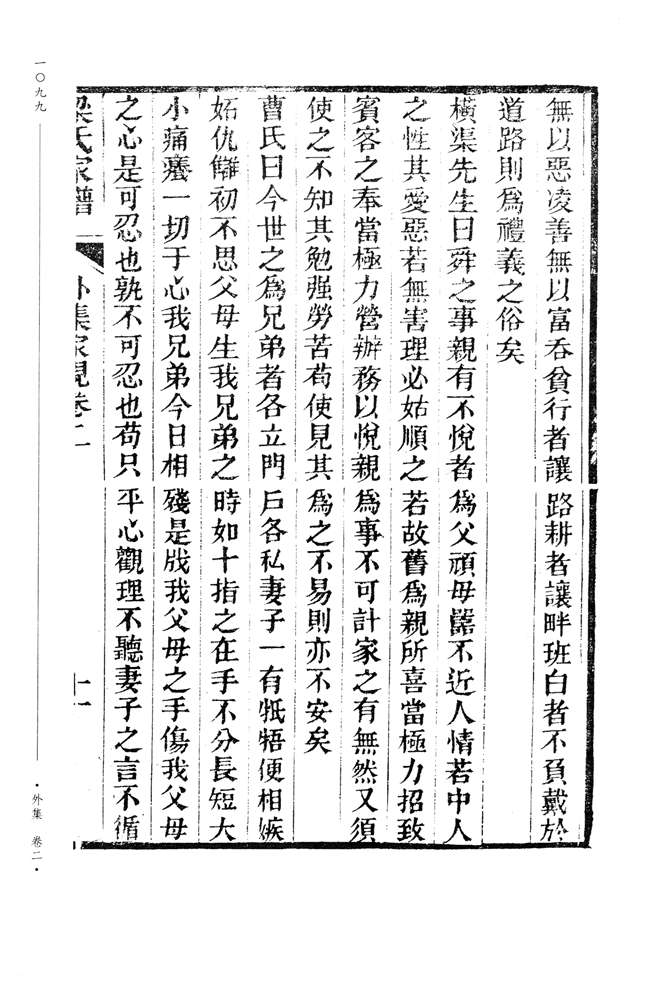 無以惡凌善無以富吞貧行者讓路耕者讓畔班白者不負戴於
道路則爲禮義之俗矣
橫渠先生曰舜之事親有不悅者爲父頑母嚚不近人情若中人
之性其愛惡若無害理必姑順之若故舊爲親所喜當極力招致
賓客之奉當極力營辦務以悅親爲事不可計家之有無然又須
使之不知其勉强勞苦苟使見其爲之不易則亦不安矣
曹氏曰今世之爲兄弟者各立門戶各私妻子一有牴牾便相嫉
妬仇讎初不思父母生我兄弟之時如十指之在手不分長短大
小痛癢一切于心我兄弟今日相殘是戕我父母之手傷我父母
之心是可忍也孰不可忍也苟只平心觀理不聽妻子之言不循
梁氏家譜
外集家規卷二
十一
一〇九九
·外集 卷二·